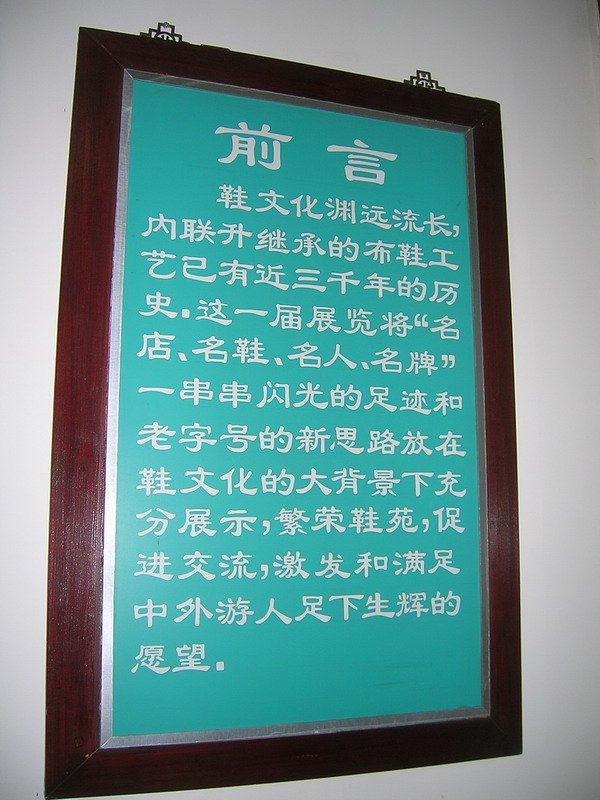 前言
鞋文化渊远流长，
内联升继承的布鞋工
艺已有近三千年的历
史.这一届展览将“名
店、名鞋、名人、名牌”
一串串闪光的足迹和
老字号的新思路放在
鞋文化的大背景下充
分展示，繁荣鞋苑，促
进交流，激发和满足
中外游人足下生辉的
愿望.